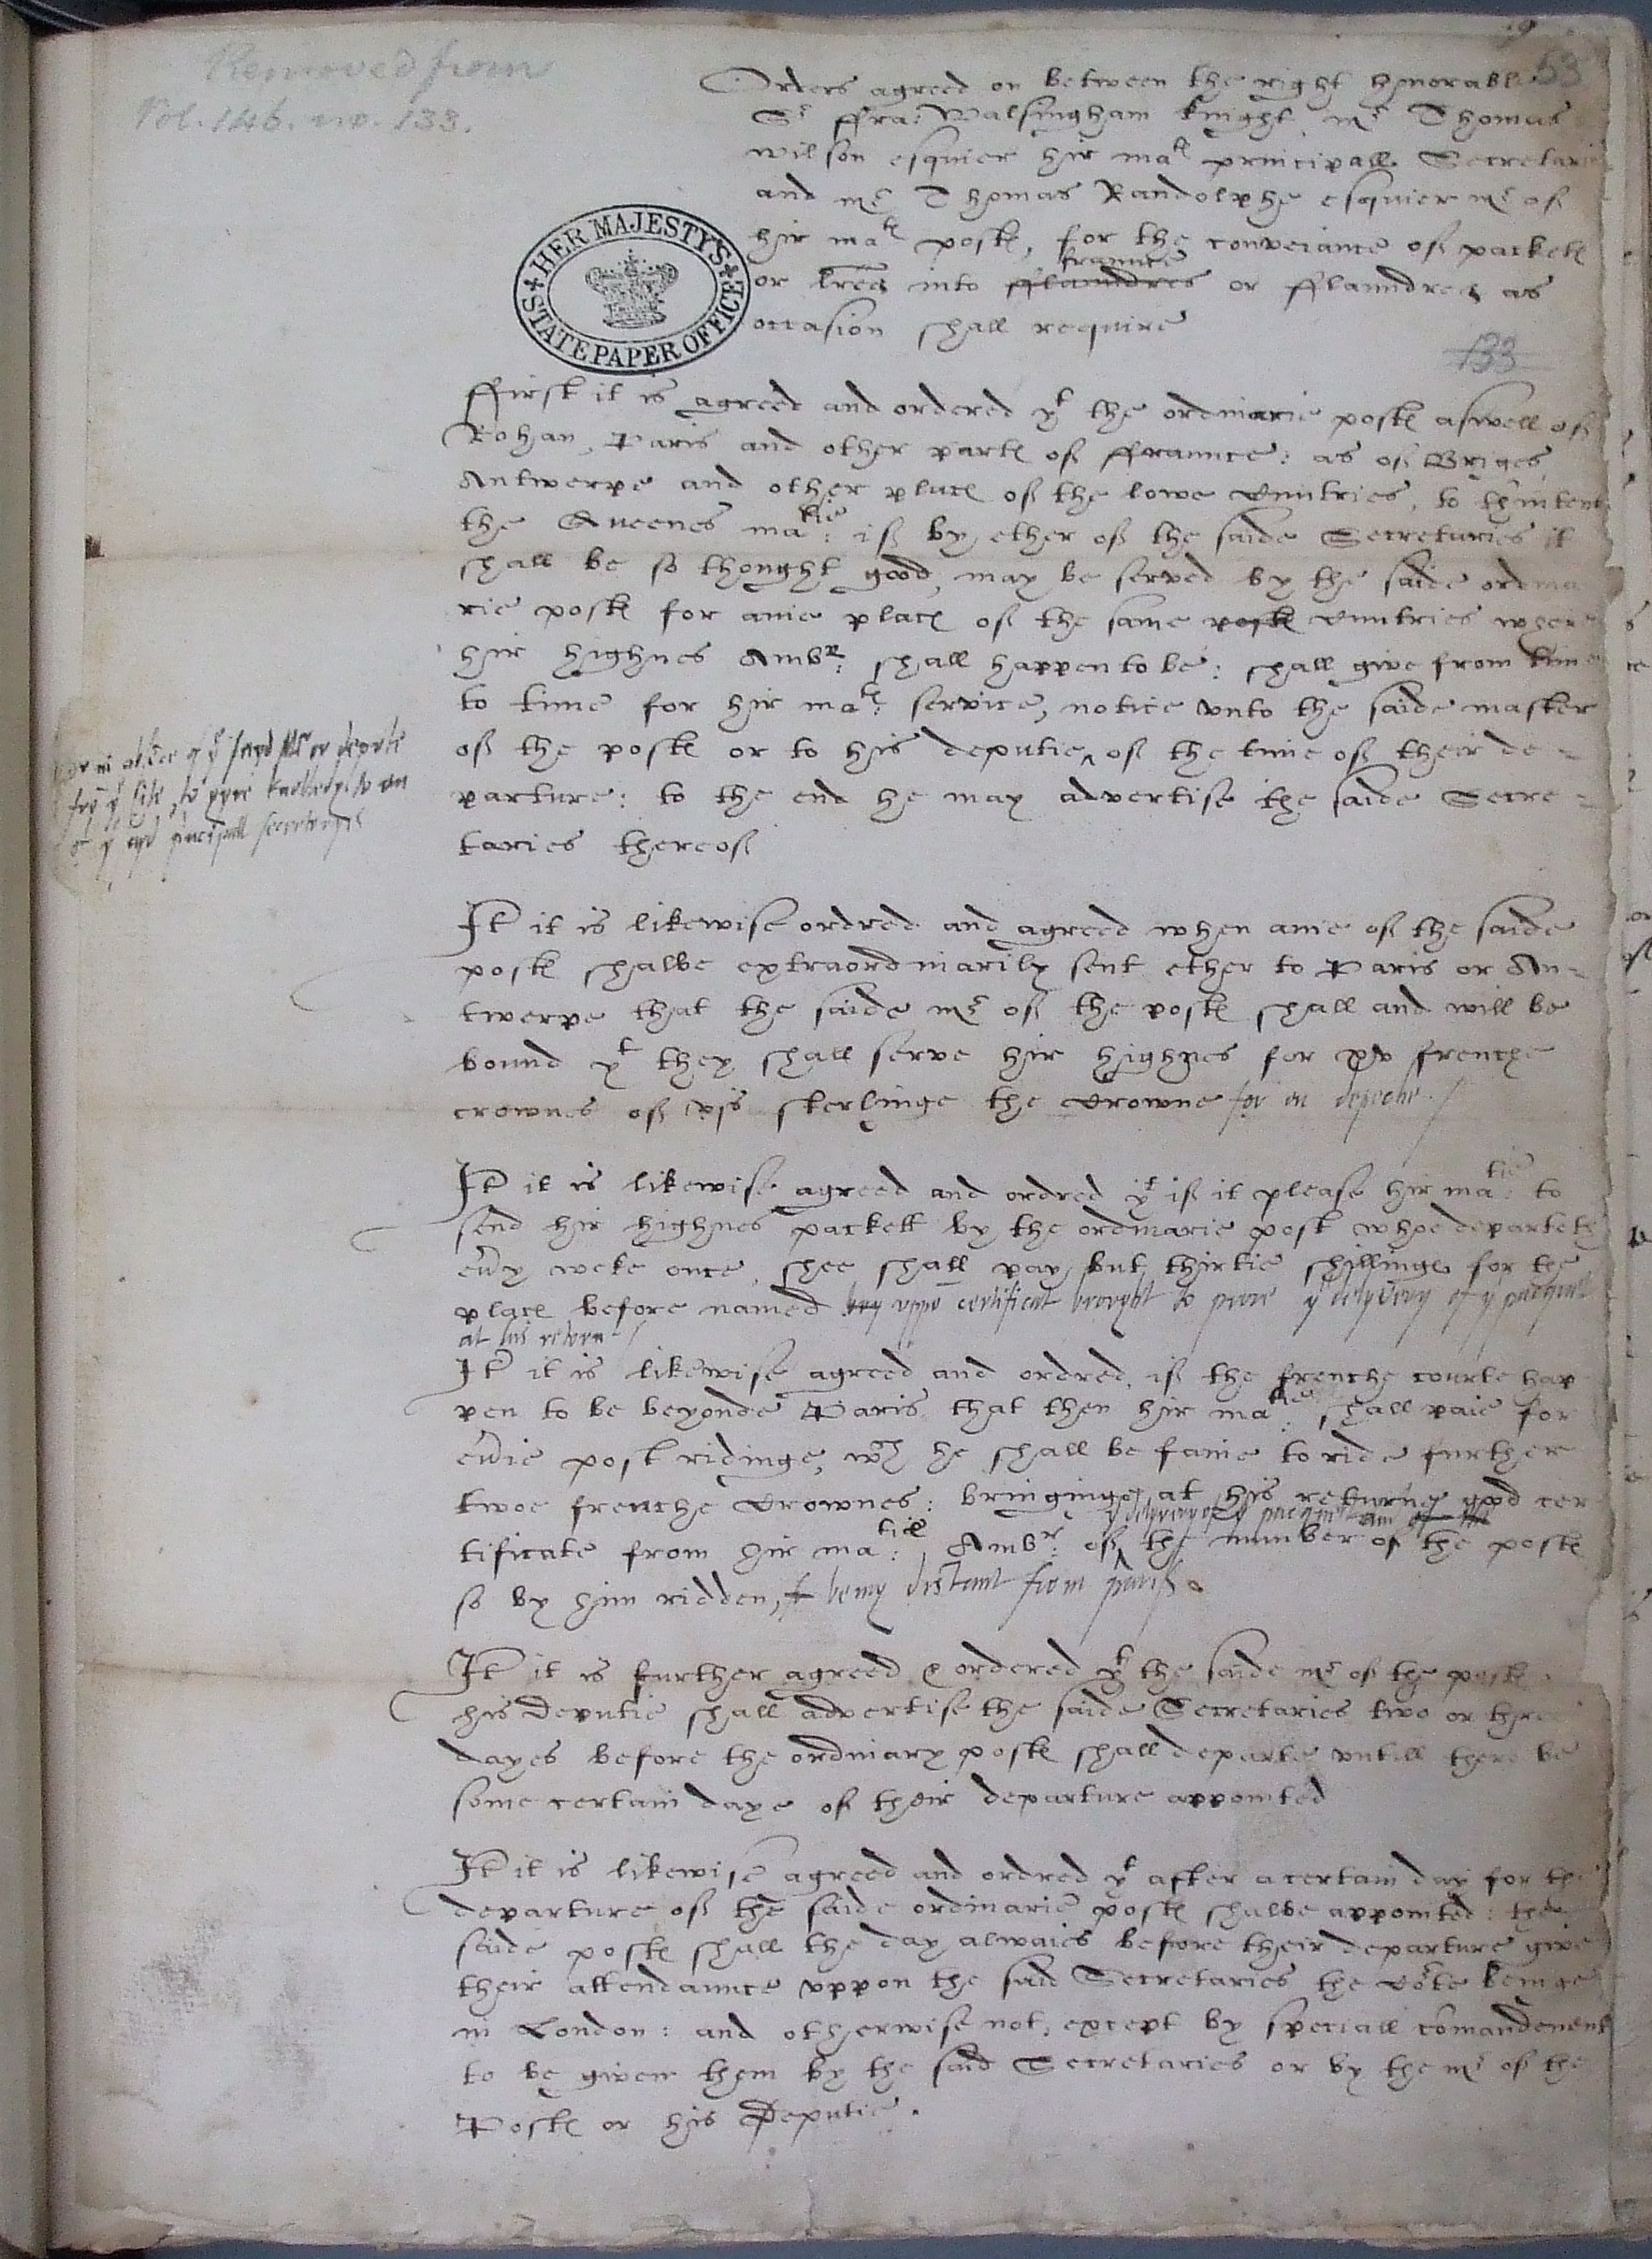 Removed from
Vol. 146. no. 133.
53
Orders agreed on betwene the right honorable
Sr ffra: Walsingham knight mr Thomas
wilson esquier hir mats principall Secretarie
and mr Thomas Randolphe esquier mr of
hir mats posts, for the conveiance of packets
fraunce
or lres into fflaundres or fflaundres as
occasion shall require
HER MAJESTY'S
STATE PAPER OFFICE
133
ffirst it is agreed and ordered yt the ordinarie posts aswell of
Rohan, Paris and other parts of ffraunce: as of Briges
Antwerpe and other places of the lowe Cuntries, to thintent
the Queenes matie: if by ether of the saide Secretaries it
shall be so thought good, may be served by the saide ordina
rie posts for anie places of the same posts Cuntries where
hir highnes Ambr: shall happen to be: shall give from time
to time for hir mats: service, notice vnto the saide master
of the posts or to his deputie of the time of their de-
parture: to the end he may advertise the saide Secre-
taries thereof
or in absēce of ye sayd Mr or deputie
frō ye sitē, to gyve knolledge to on
of ye sayd principall secretaryes
It it is likewise ordred and agreed when anie of the saide
posts shalbe extraordinarily sent ether to Paris or An-
twerpe that the saide mr of the posts shall and will be
bound yt they shall serve hir highnes for xv frenche
crownes of vjs sterlinge the Crowne for on depeche.
It it is likewise agreed and ordred yt if it please hir matie: to
send hir highnes packett by the ordinarie post whoe departeth
evȳ weke once, shee shall pay but thirtie shillings for the
places before named vppō certificat brought to prove ye delyvery of ye pacquett
at his retorn
It it is likewise agreed and ordred, if the frenche courte hap
pen to be beyonde Paris that then hir matie: shall paie for
evīe post ridinge, wch he shall be faine to ride further
twoe frenche Crownes: bringinge at his returne good cer
ye delyvery of ye pacquet and of the
tificate from hir maties: Ambr: of the number of the posts
so by him ridden, being distant from paris.
It it is further agreed & ordered yt the saide mr of the posts
his Deputie shall advertise the saide Secretaries two or three
dayes before the ordinary posts shall departe vntill there be
some certain daye of their departure appointed
It it is likewise agreed and ordred yt after a certain day for the
departure of the saide ordinarie posts shalbe appointed: the
saide posts shall the day alwaies before their departure give
their attendaunce vppon the said Secretaries the Corte beinge
in London: and otherwise not, except by speciall comaundement
to be given them by the said Secretaries or by the mr of the
Posts or his Deputie.